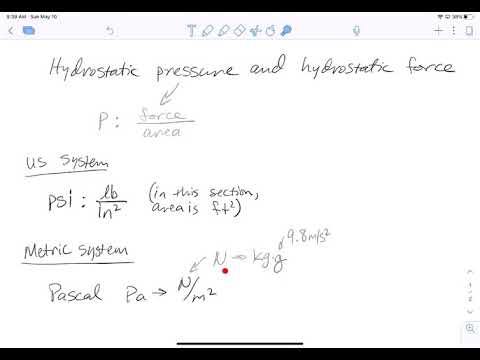 9:39 AM Sun May 10
Hydrostatic pressure and hydrostatic force
P: force/area
US System
psi: lb/in² (in this section, area is ft²)
Metric System
N → kg·g 9.8 m/s²
Pascal Pa → N/m²